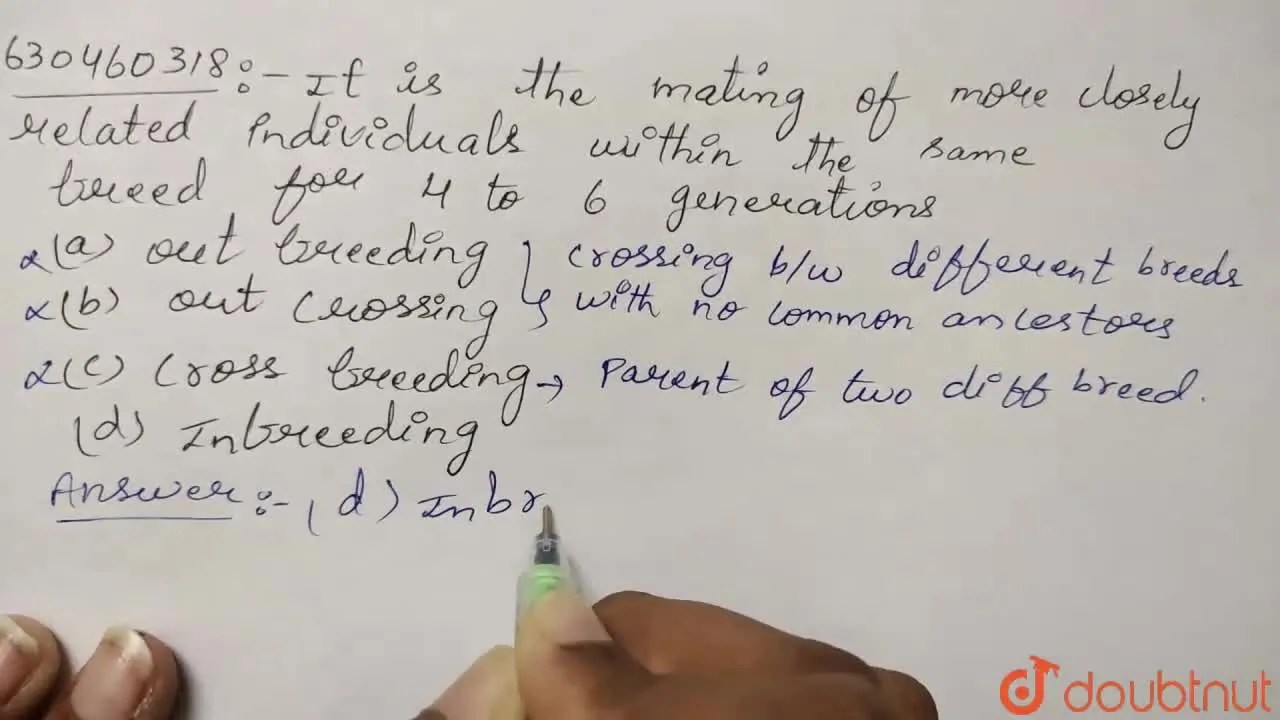 630460318:- It is the mating of more closely
related individuals within the same
breed for 4 to 6 generations
x (a) out breeding } crossing b/w different breeds
x (b) out crossing } with no common ancestors
x (c) Cross breeding → Parent of two diff breed.
(d) Inbreeding
Answer:- (d) Inbr
doubtnut